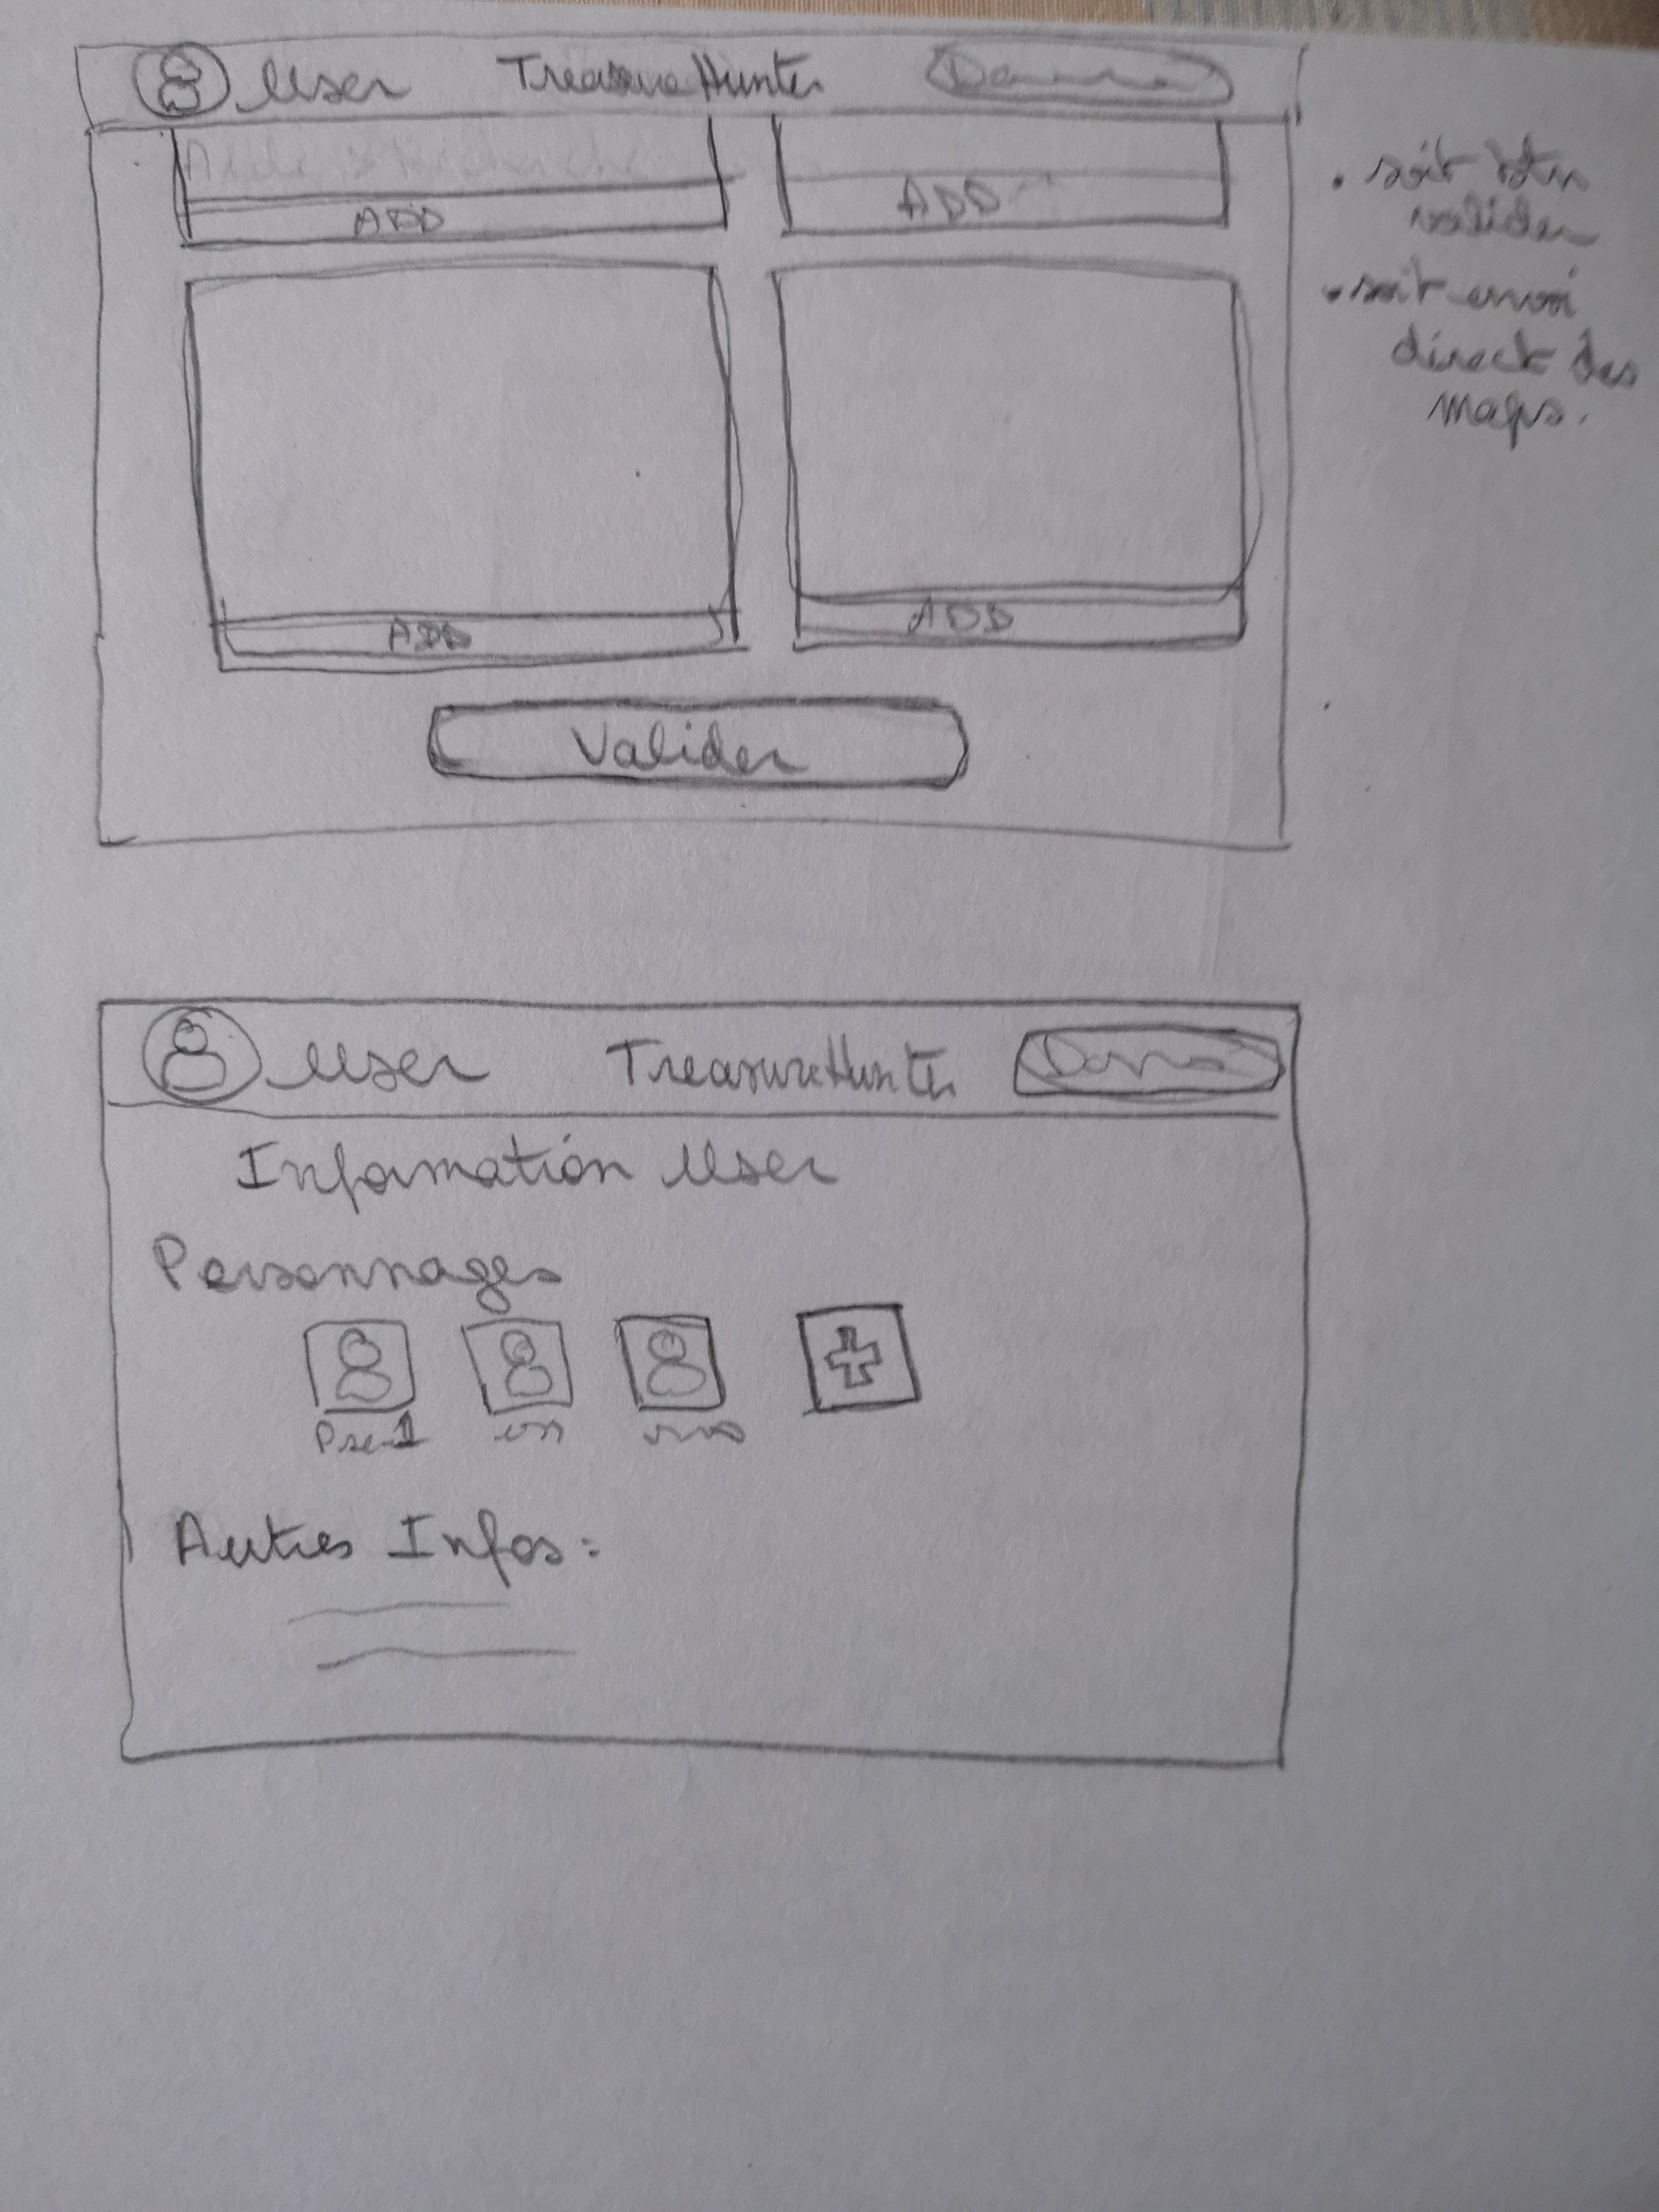 User TreasureHunter
ADD ADD
ADD ADD
Valider
. soit btn
valider
. soit envoi
direct des
maps.
User TreasureHunter
Information User
Personnages
Autres Infos: